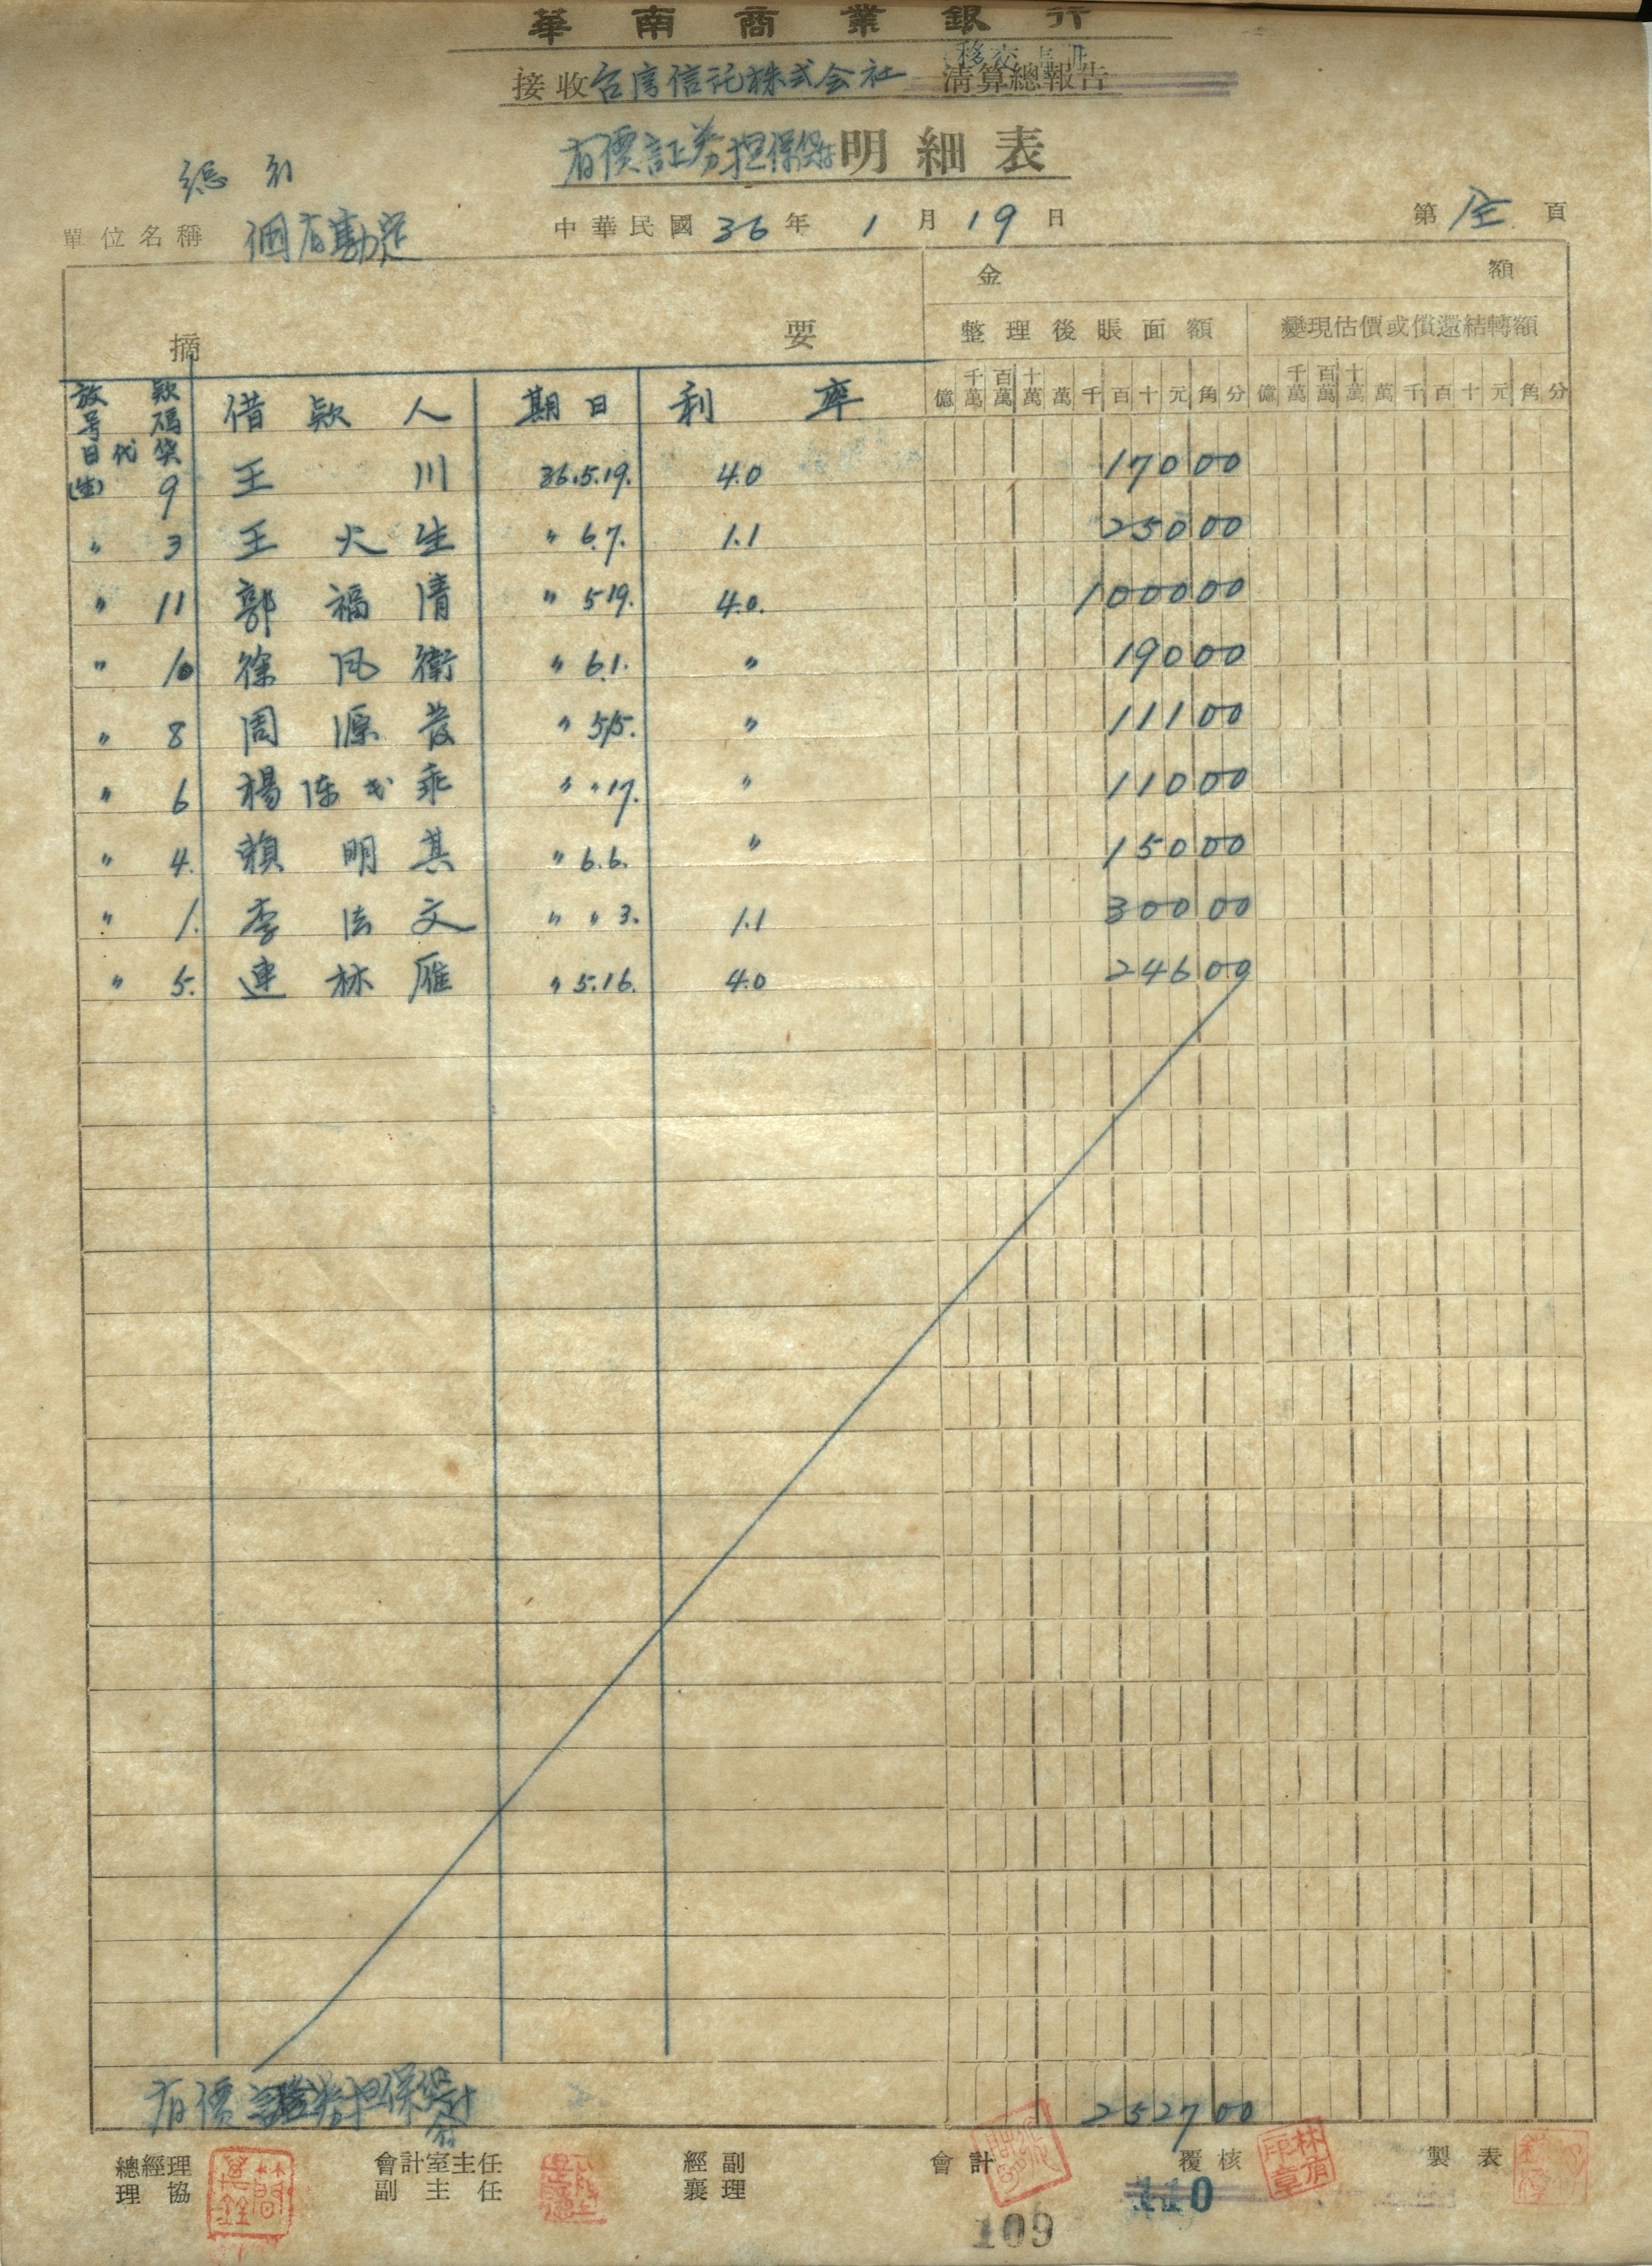 華南商業銀行
移交
接收台湾信託株式会社 清算總報告
有價証券担保貸 明細表
總行
單位名稱 個有勘定 中華民國36年1月19日 第全頁
金額
摘要 整理後賬面額 變現估價或償還結轉額
億千萬百萬十萬萬千百十元角分 億千萬百萬十萬萬千百十元角分
放款 借款人 期日 利率
号碼
日代
9 王川 36.5.19. 4.0 17000
〃 3 王火生 〃 6.7. 1.1 25000
〃 11 郭福清 〃 5.19. 4.0. 100000
〃 10 徐風衛 〃 6.1. 〃 19000
〃 8 周源發 〃 5.15. 〃 11100
〃 6 楊陈 乖 〃 〃 17. 〃 11000
〃 4. 賴明其 〃 6.6. 〃 15000
〃 1. 李法文 〃 〃 3. 1.1 30000
〃 5. 連林雁 〃 5.16. 4.0 24600
有價證券担保貸 252700
總經理 會計室主任 經副 會計 覆核 製表
協理 副主任 襄理
林有印章
110
109